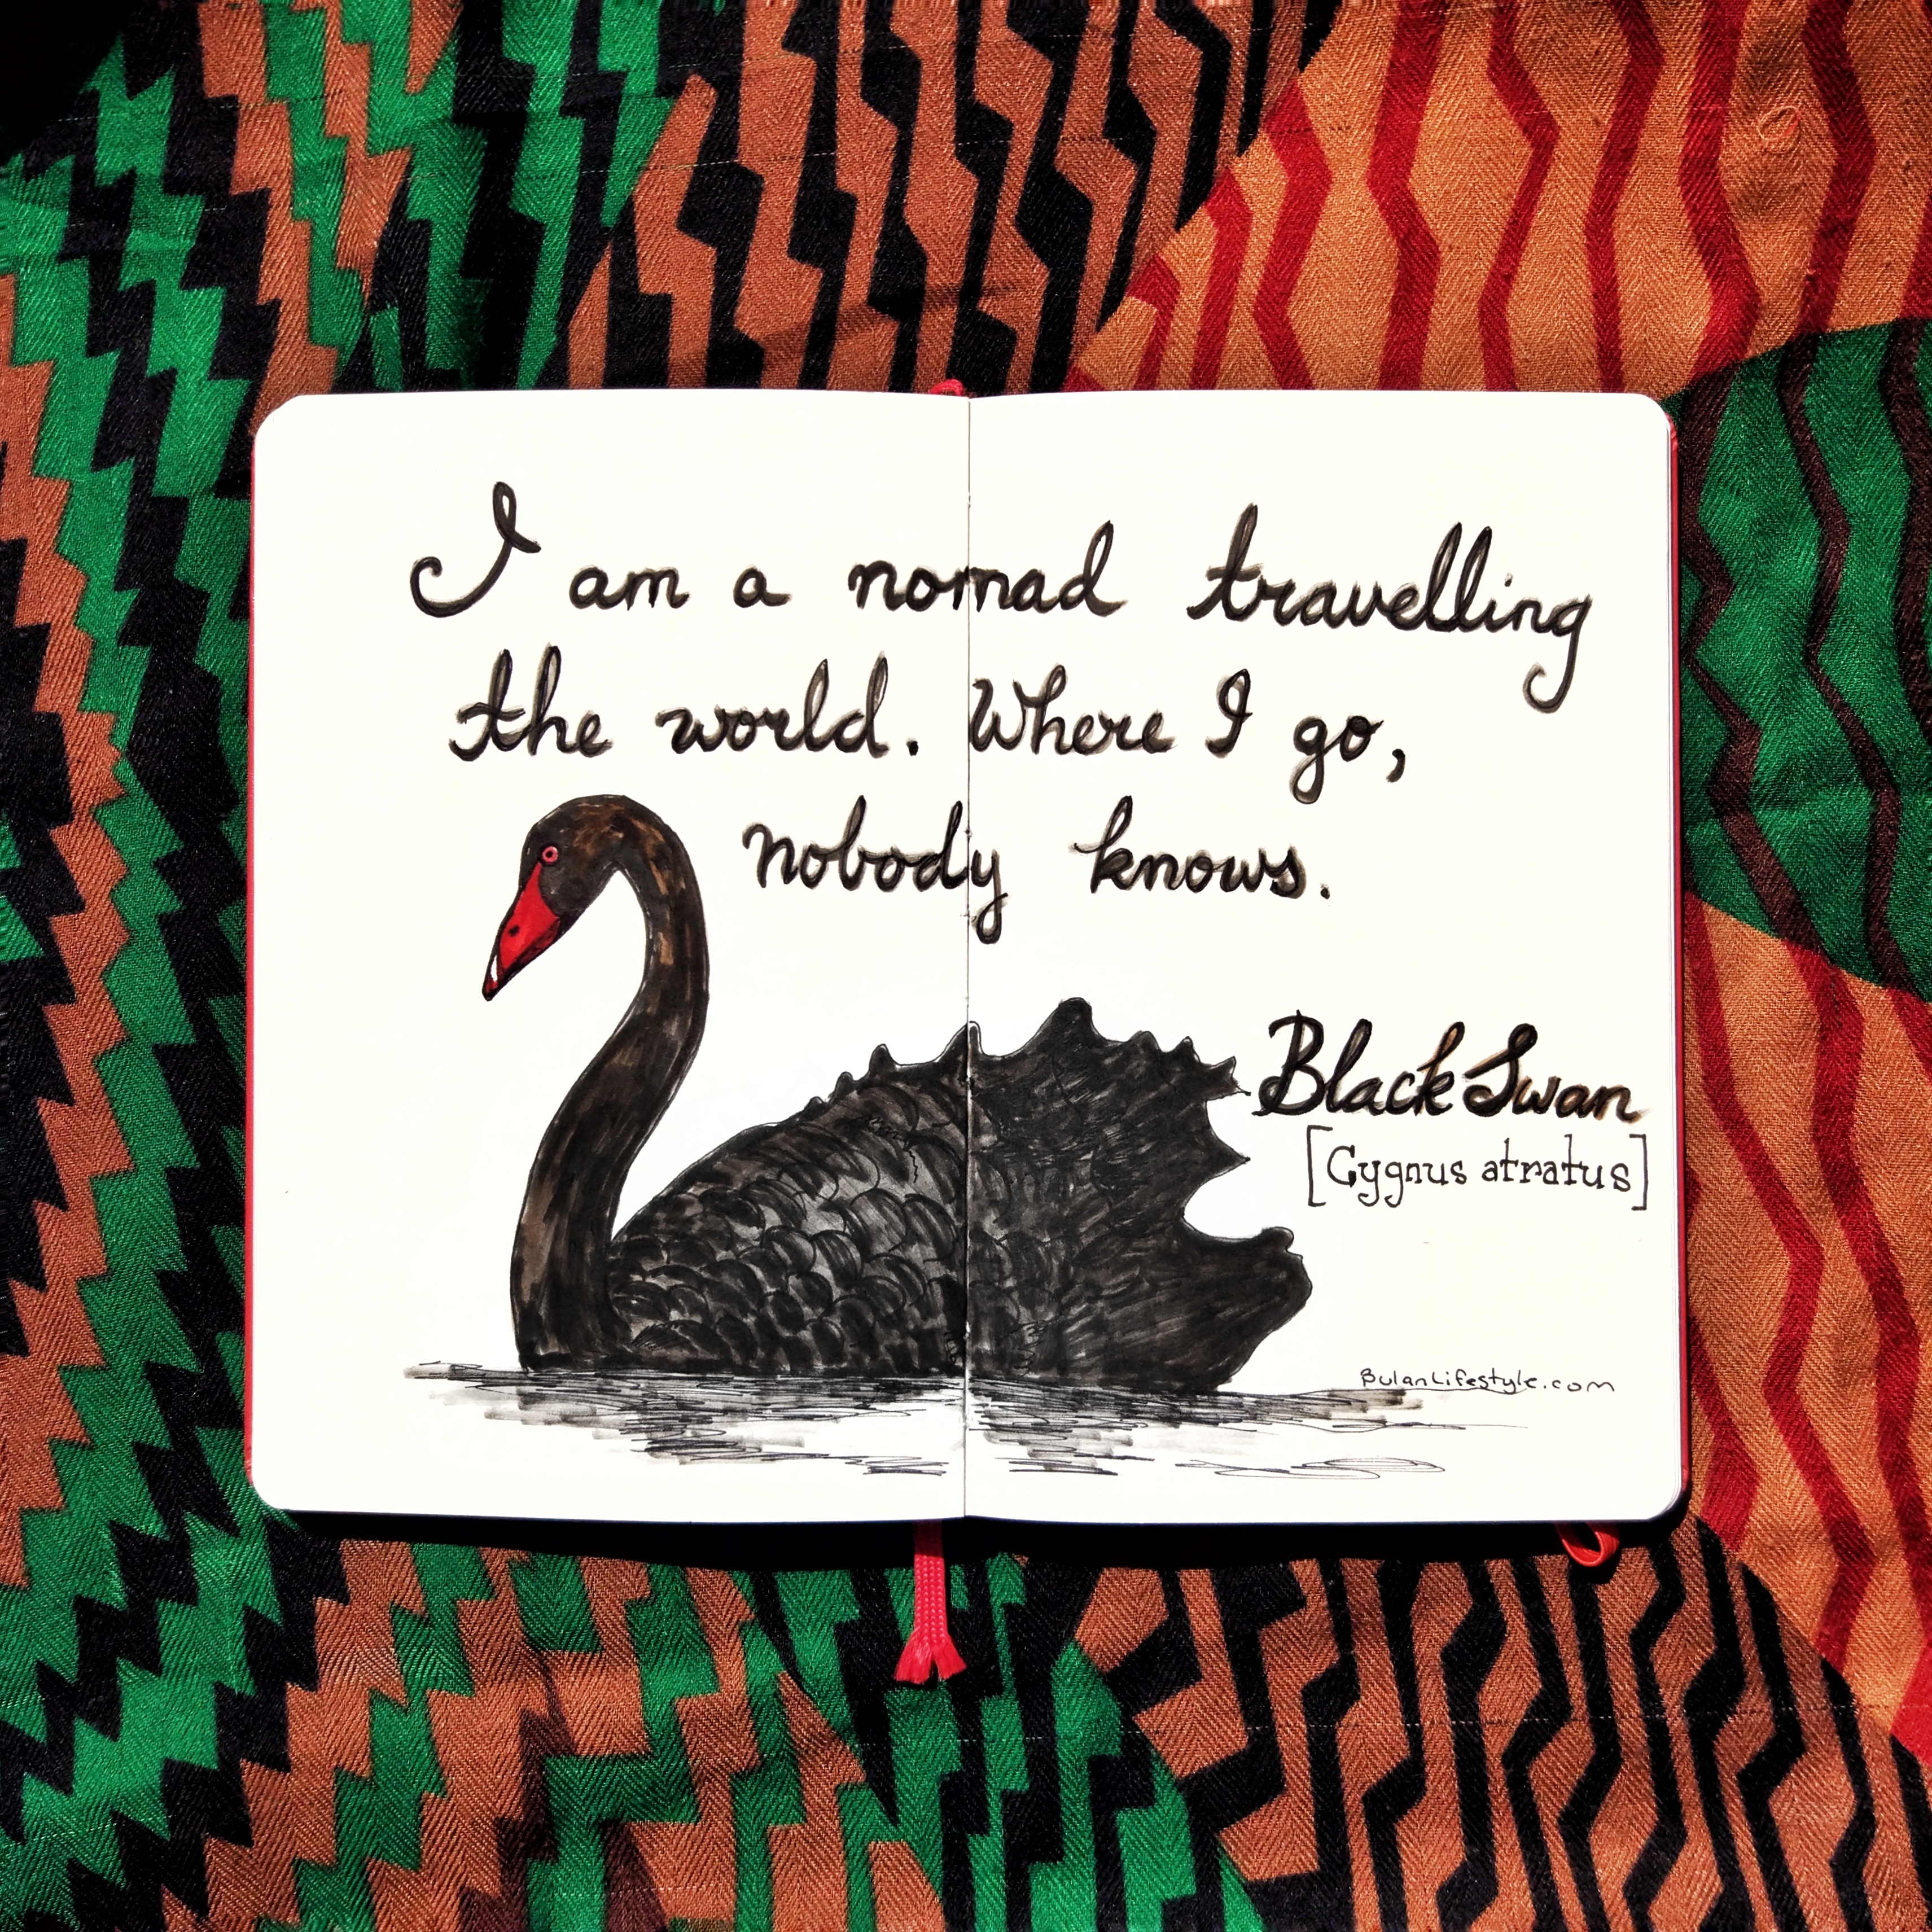 I am a nomad travelling
the world. Where I go,
nobody knows.
Black Swan
[Cygnus atratus]
BulanLifestyle.com